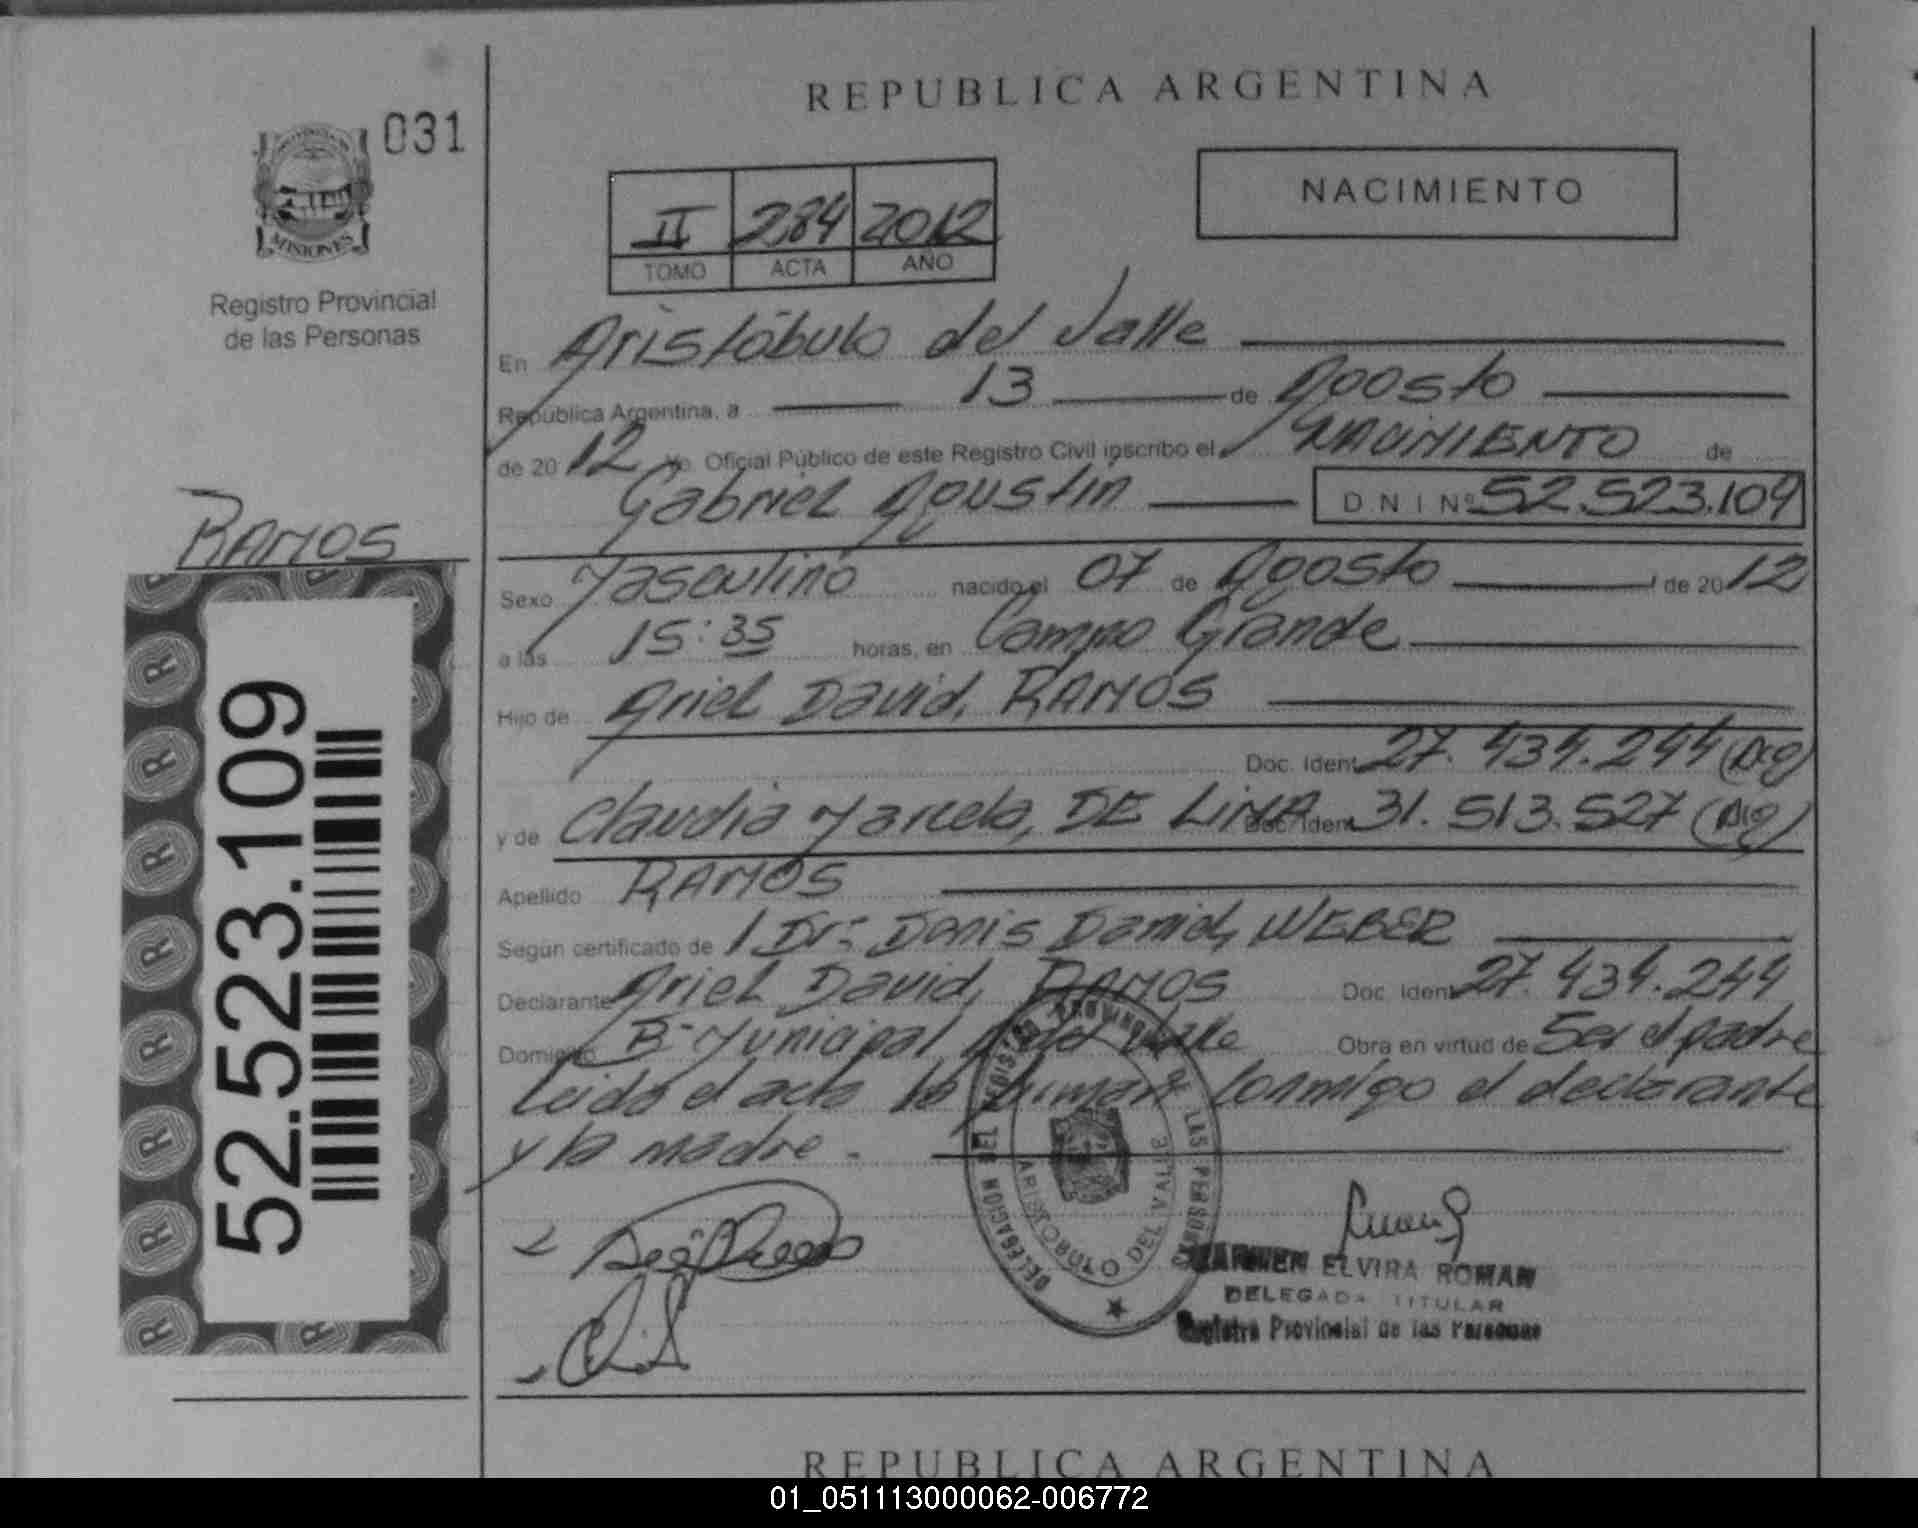 REPUBLICA ARGENTINA
031
NACIMIENTO
II 284 2012
TOMO ACTA AÑO
MISIONES
Registro Provincial
de las Personas
En Aristóbulo del Valle
República Argentina, a 13 de Agosto
de 20 12 Yo Oficial Público de este Registro Civil inscribo el NACIMIENTO de
Gabriel Agustin D N I Nº 52.523.109
RAMOS
Sexo Masculino nacido el 07 de Agosto de 20 12
a las 15:35 horas, en Campo Grande
Hijo de Ariel David, RAMOS
Doc. Ident 27.434.244 (Arg)
y de Claudia Marcela, DE LIMA Doc. Ident 31.513.527 (Arg)
Apellido RAMOS
Según certificado de Dr: Denis Daniel, WEBER
Declarante Ariel David, RAMOS Doc. Ident 27.434.244
Domicilio B- Municipal Valle Obra en virtud de Ser el padre
Leido el acta la firman conmigo el declarante
y la madre.
52.523.109
DELEGACION DEL REGISTRO PROVINCIAL DE LAS PERSONAS
ARISTOBULO DEL VALLE
CARMEN ELVIRA ROMAN
DELEGADA TITULAR
Registro Provincial de las Personas
REPUBLICA ARGENTINA
01_051113000062-006772